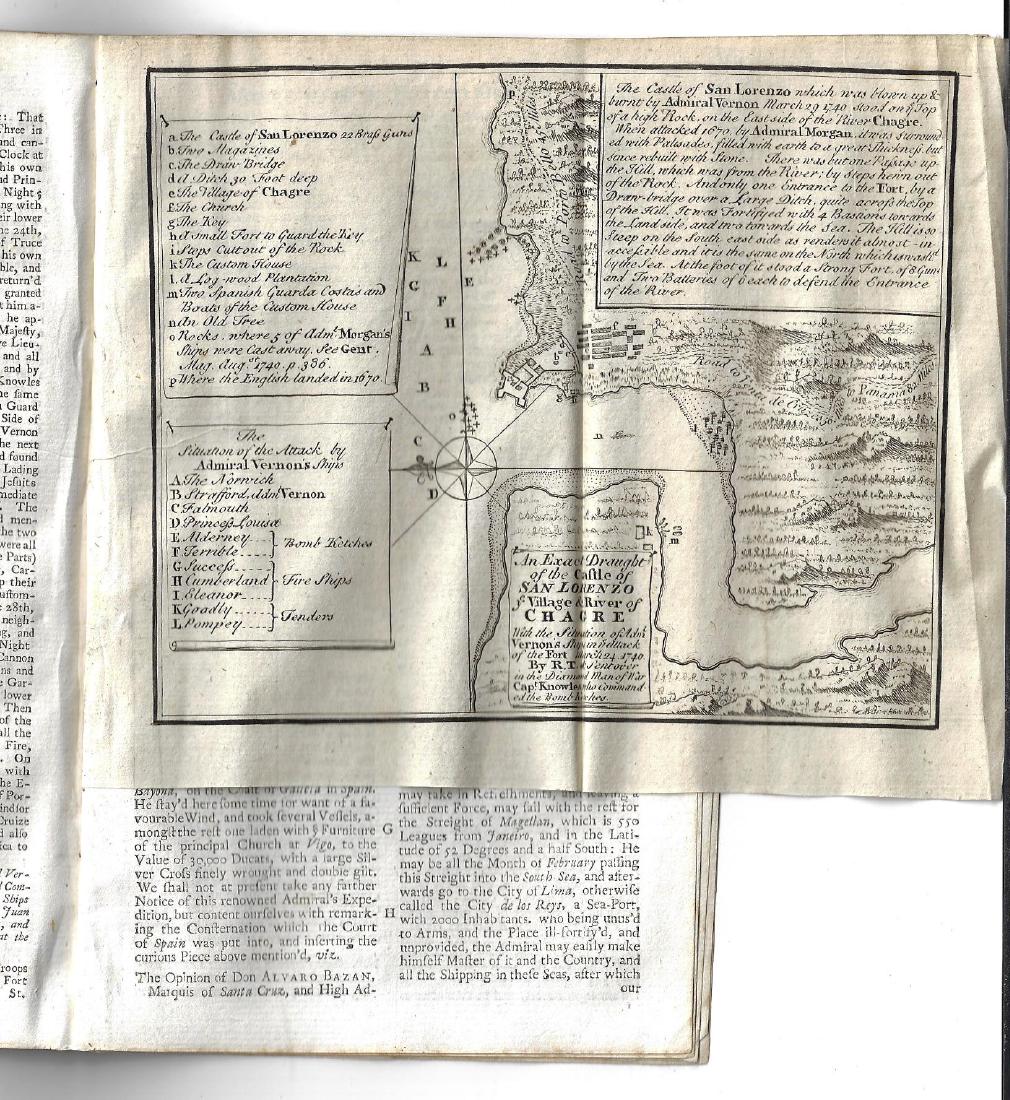 :. That
Three in
and can-
Clock at
his own
nd Prin-
Night;
ng with
eir lower
ne 24th,
f Truce
his own
ble, and
return'd
granted
t him a-
he ap-
Majesty,
re Lieu-
and all
and by
Knowles
he same
a Guard
Side of
Vernon
he next
d found
Lading
Jesuits
mediate
. The
d men-
he two
were all
e Parts)
, Car-
p their
ustom-
e 28th,
neigh-
ng, and
Night
Cannon
ns and
e Gar-
lower
Then
of the
all the
Fire,
. On
with
he E-
f Por-
indsor
Cruize
d also
ica to
l Ver-
d Com-
Ships
Juan
, and
at the
roops
Fort
St.
a The Castle of San Lorenzo 22 Brass Guns
b. Two Magazines
c. The Draw Bridge
d A Ditch 30 Foot deep
e The Village of Chagre
f. The Church
g The Key
h A small Fort to Guard the Key
i Steps Cut out of the Rock.
k. The Custom House
l. A Log-wood Plantation
m Two Spanish Guarda Costas and
Boats of the Custom House
n An Old Tree
o Rocks, where 5 of Adml. Morgan's
Ships were Cast away. See Gent.
Mag. Augst. 1740. p. 386.
p Where the English landed in 1670.
The
Situation of the Attack by
Admiral Vernon's Ships
A The Norwich
B Strafford, Adml. Vernon
C Falmouth
D Princess Louisa
E Alderney
F Terrible
Bomb Ketches
G Success
H Cumberland
I. Eleanor
Fire Ships
K Goodly
L Pompey
Tenders
The Castle of San Lorenzo which was blown up &
burnt by Admiral Vernon March 29 1740 stood on ye Top
of a high Rock, on the East side of the River Chagre.
When attacked 1670. by Admiral Morgan, it was surround
ed with Palisades, filled with earth to a great Thickness, but
since rebuilt with Stone. There was but one Passage up
the Hill, which was from the River; by steps hewn out
of the Rock. And only one Entrance to the Fort, by a
Draw-bridge over a Large Ditch, quite across the Top
of the Hill. It was Fortifyed with 4 Bastions towards
the Land side, and two towards the Sea. The Hill is so
Steep on the South east side as renders it almost in-
accessible and it is the same on the North which is wash'd
by the Sea. At the foot of it stood a Strong Fort, of 8 Guns
and Two Batteries of 6 each to defend the Entrance
of the River.
p
K L
G E
I F H
A
B
o
C
D
n
f
b
k
m
Road to Porto Bello
Road to
to Panama
An Exact Draught
of the Castle of
SAN LORENZO
ye Village & River of
CHAGRE
With the Situation of Adml.
Vernon's Ships in ye Attack
of the Fort March 24. 1740
By R.T. Sent over
in the Diamond Man of War
Capt. Knowles who command
ed the Bomb Ketches.
Bayona, on the Coast of Galicia in Spain.
He stay'd here some time for want of a fa-
vourable Wind, and took several Vessels, a-
mongst the rest one laden with ye Furniture G
of the principal Church at Vigo, to the
Value of 30,000 Ducats, with a large Sil-
ver Cross finely wrought and double gilt.
We shall not at present take any farther
Notice of this renowned Admiral's Expe-
dition, but content ourselves with remark- H
ing the Consternation which the Court
of Spain was put into, and inserting the
curious Piece above mention'd, viz.
The Opinion of Don ALVARO BAZAN,
Marquis of Santa Cruz, and High Ad-
may take in Refreshments, and leaving a
sufficient Force, may sail with the rest for
the Streight of Magellan, which is 550
Leagues from Janeiro, and in the Lati-
tude of 52 Degrees and a half South: He
may be all the Month of February passing
this Streight into the South Sea, and after-
wards go to the City of Lima, otherwise
called the City de los Reys, a Sea-Port,
with 2000 Inhabitants. who being unus'd
to Arms, and the Place ill-fortify'd, and
unprovided, the Admiral may easily make
himself Master of it and the Country, and
all the Shipping in these Seas, after which
our